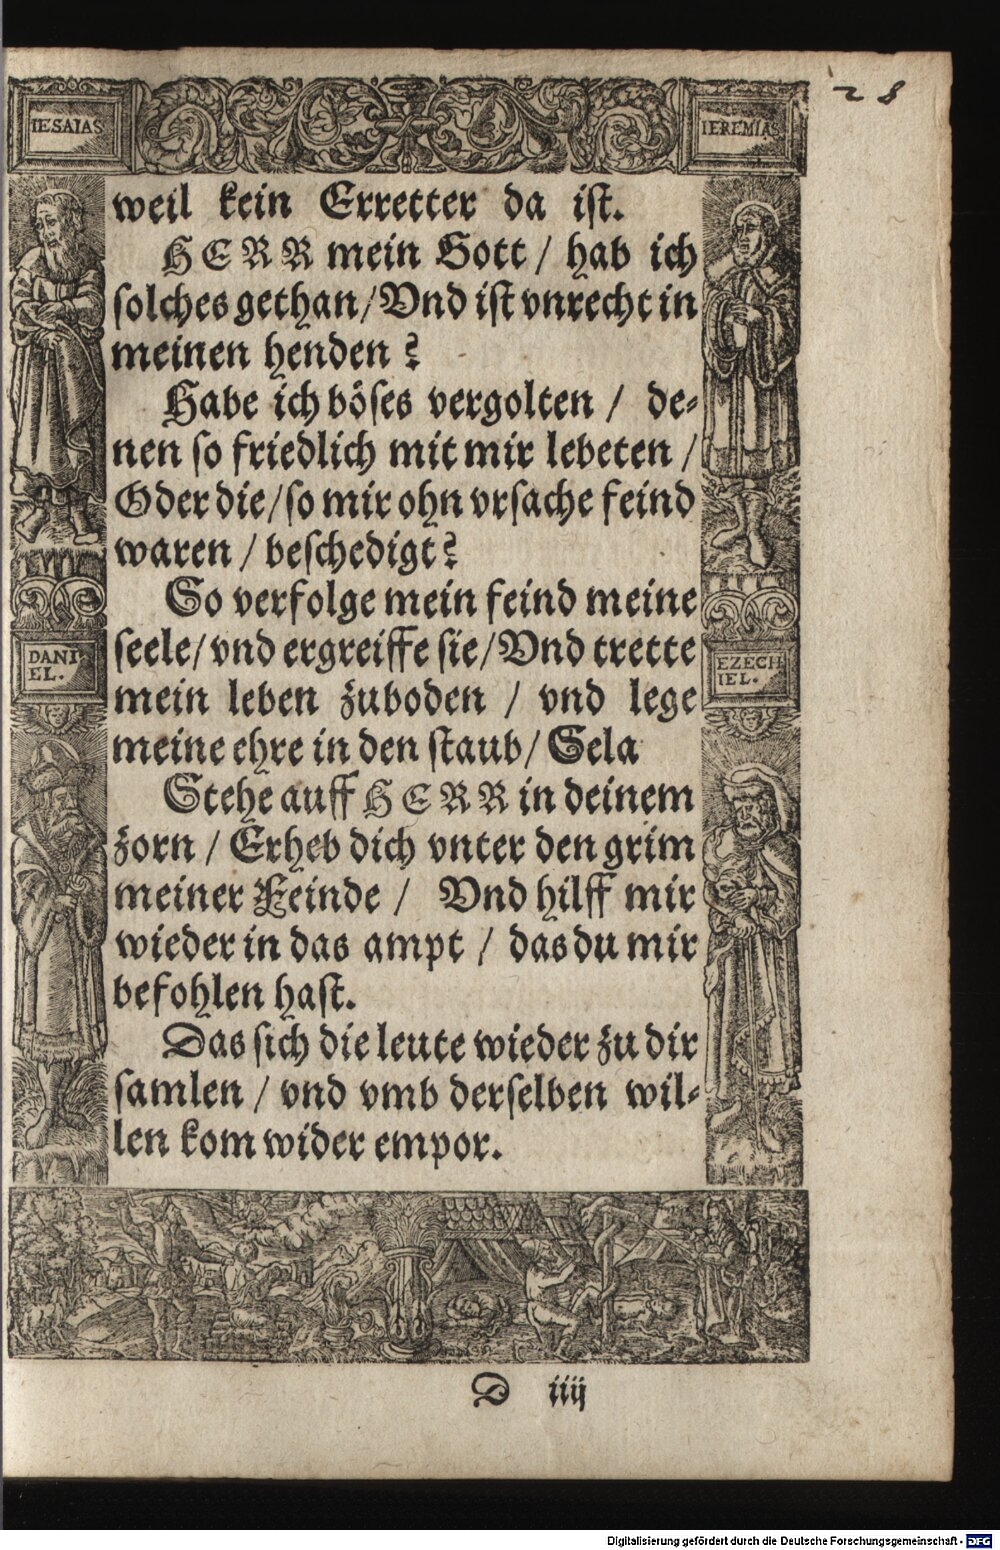 28
IESAIAS
IEREMIAS
weil kein Erretter da ist.
HERR mein Gott / hab ich
solches gethan / Vnd ist vnrecht in
meinen henden?
Habe ich böses vergolten / de-
nen so friedlich mit mir lebeten /
Oder die / so mir ohn vrsache feind
waren / beschedigt?
So verfolge mein feind meine
seele / vnd ergreiffe sie / Vnd trette
mein leben zuboden / vnd lege
meine ehre in den staub / Sela
Stehe auff HERR in deinem
zorn / Erheb dich vnter den grim
meiner Feinde / Vnd hilff mir
wieder in das ampt / das du mir
befohlen hast.
Das sich die leute wieder zu dir
samlen / vnd vmb derselben wil-
len kom wider empor.
DANI
EL.
EZECH
IEL.
D iiij
Digitalisierung gefördert durch die Deutsche Forschungsgemeinschaft - DFG